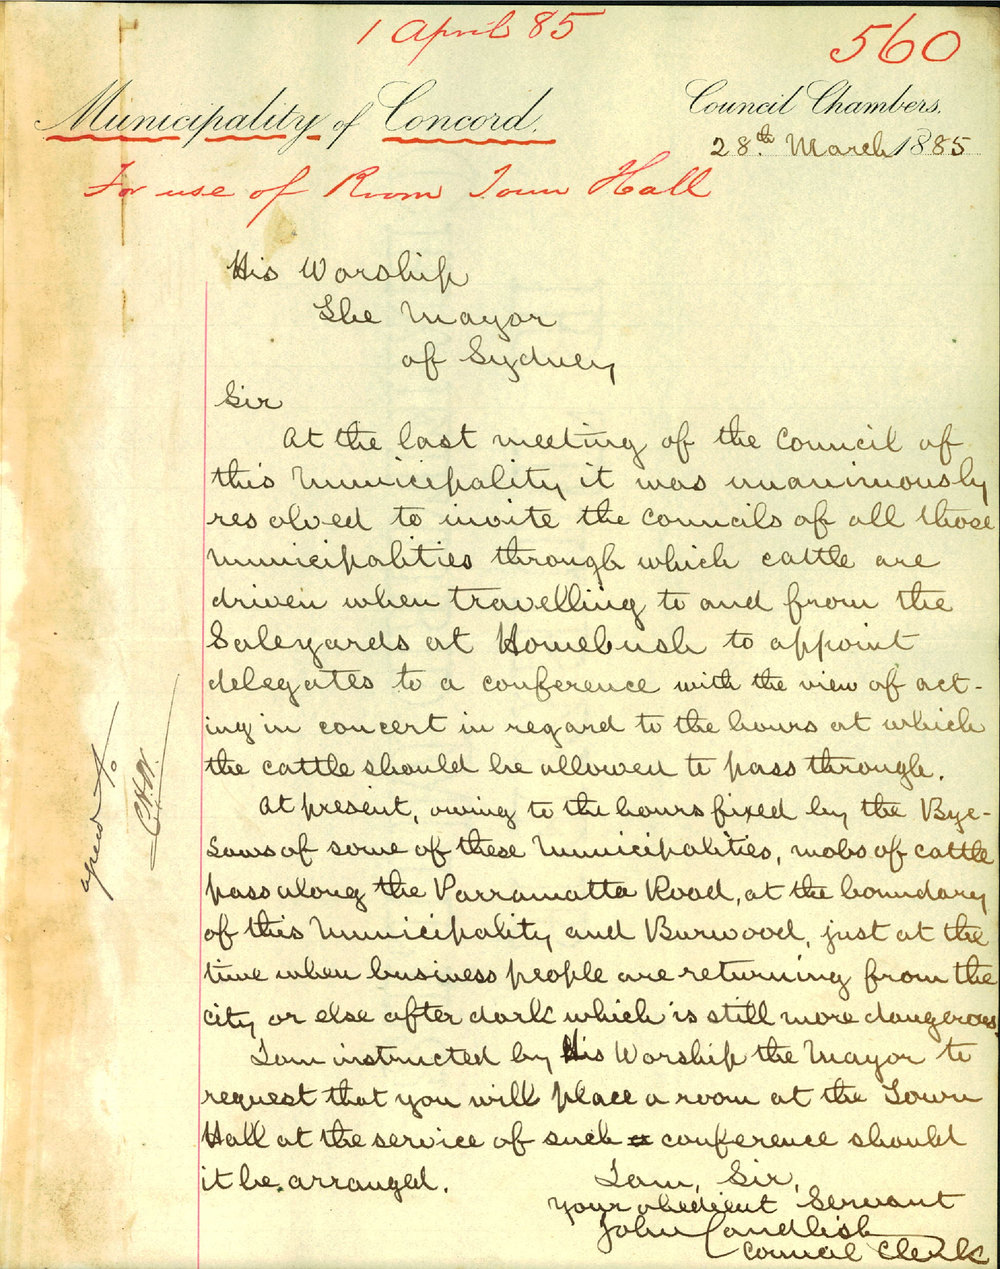 1 April 85
560
Municipality of Concord.
Council Chambers.
28th March 1885
For use of Room Town Hall
His Worship
The Mayor
of Sydney
Sir
At the last meeting of the Council of
this Municipality it was unanimously
resolved to invite the Councils of all those
Municipalities through which cattle are
driven when travelling to and from the
Saleyards at Homebush to appoint
delegates to a conference with the view of act-
ing in concert in regard to the hours at which
the cattle should be allowed to pass through.
At present, owing to the hours fixed by the Bye-
Laws of some of these Municipalities, mobs of cattle
pass along the Parramatta Road, at the boundary
of this Municipality and Burwood, just at the
time when business people are returning from the
city or else after dark which is still more dangerous.
I am instructed by His Worship the Mayor to
request that you will place a room at the Town
Hall at the service of such a conference should
it be arranged.
I am, Sir,
Your obedient Servant
John Candlish
Council Clerk
agreed to